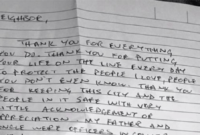 EIGHBOR,
THANK YOU FOR EVERYTHING
YOU DO. THANK YOU FOR PUTTING
YOUR LIFE ON THE LINE EVERY DAY
TO PROTECT THE PEOPLE I LOVE, PEOPLE
YOU DON'T EVEN KNOW. THANK YOU
FOR KEEPING THIS CITY AND THE
PEOPLE IN IT SAFE WITH VERY
LITTLE ACKNOWLEDGEMENT OR
APPRECIATION. MY FATHER AND
UNCLE WERE OFFICERS IN